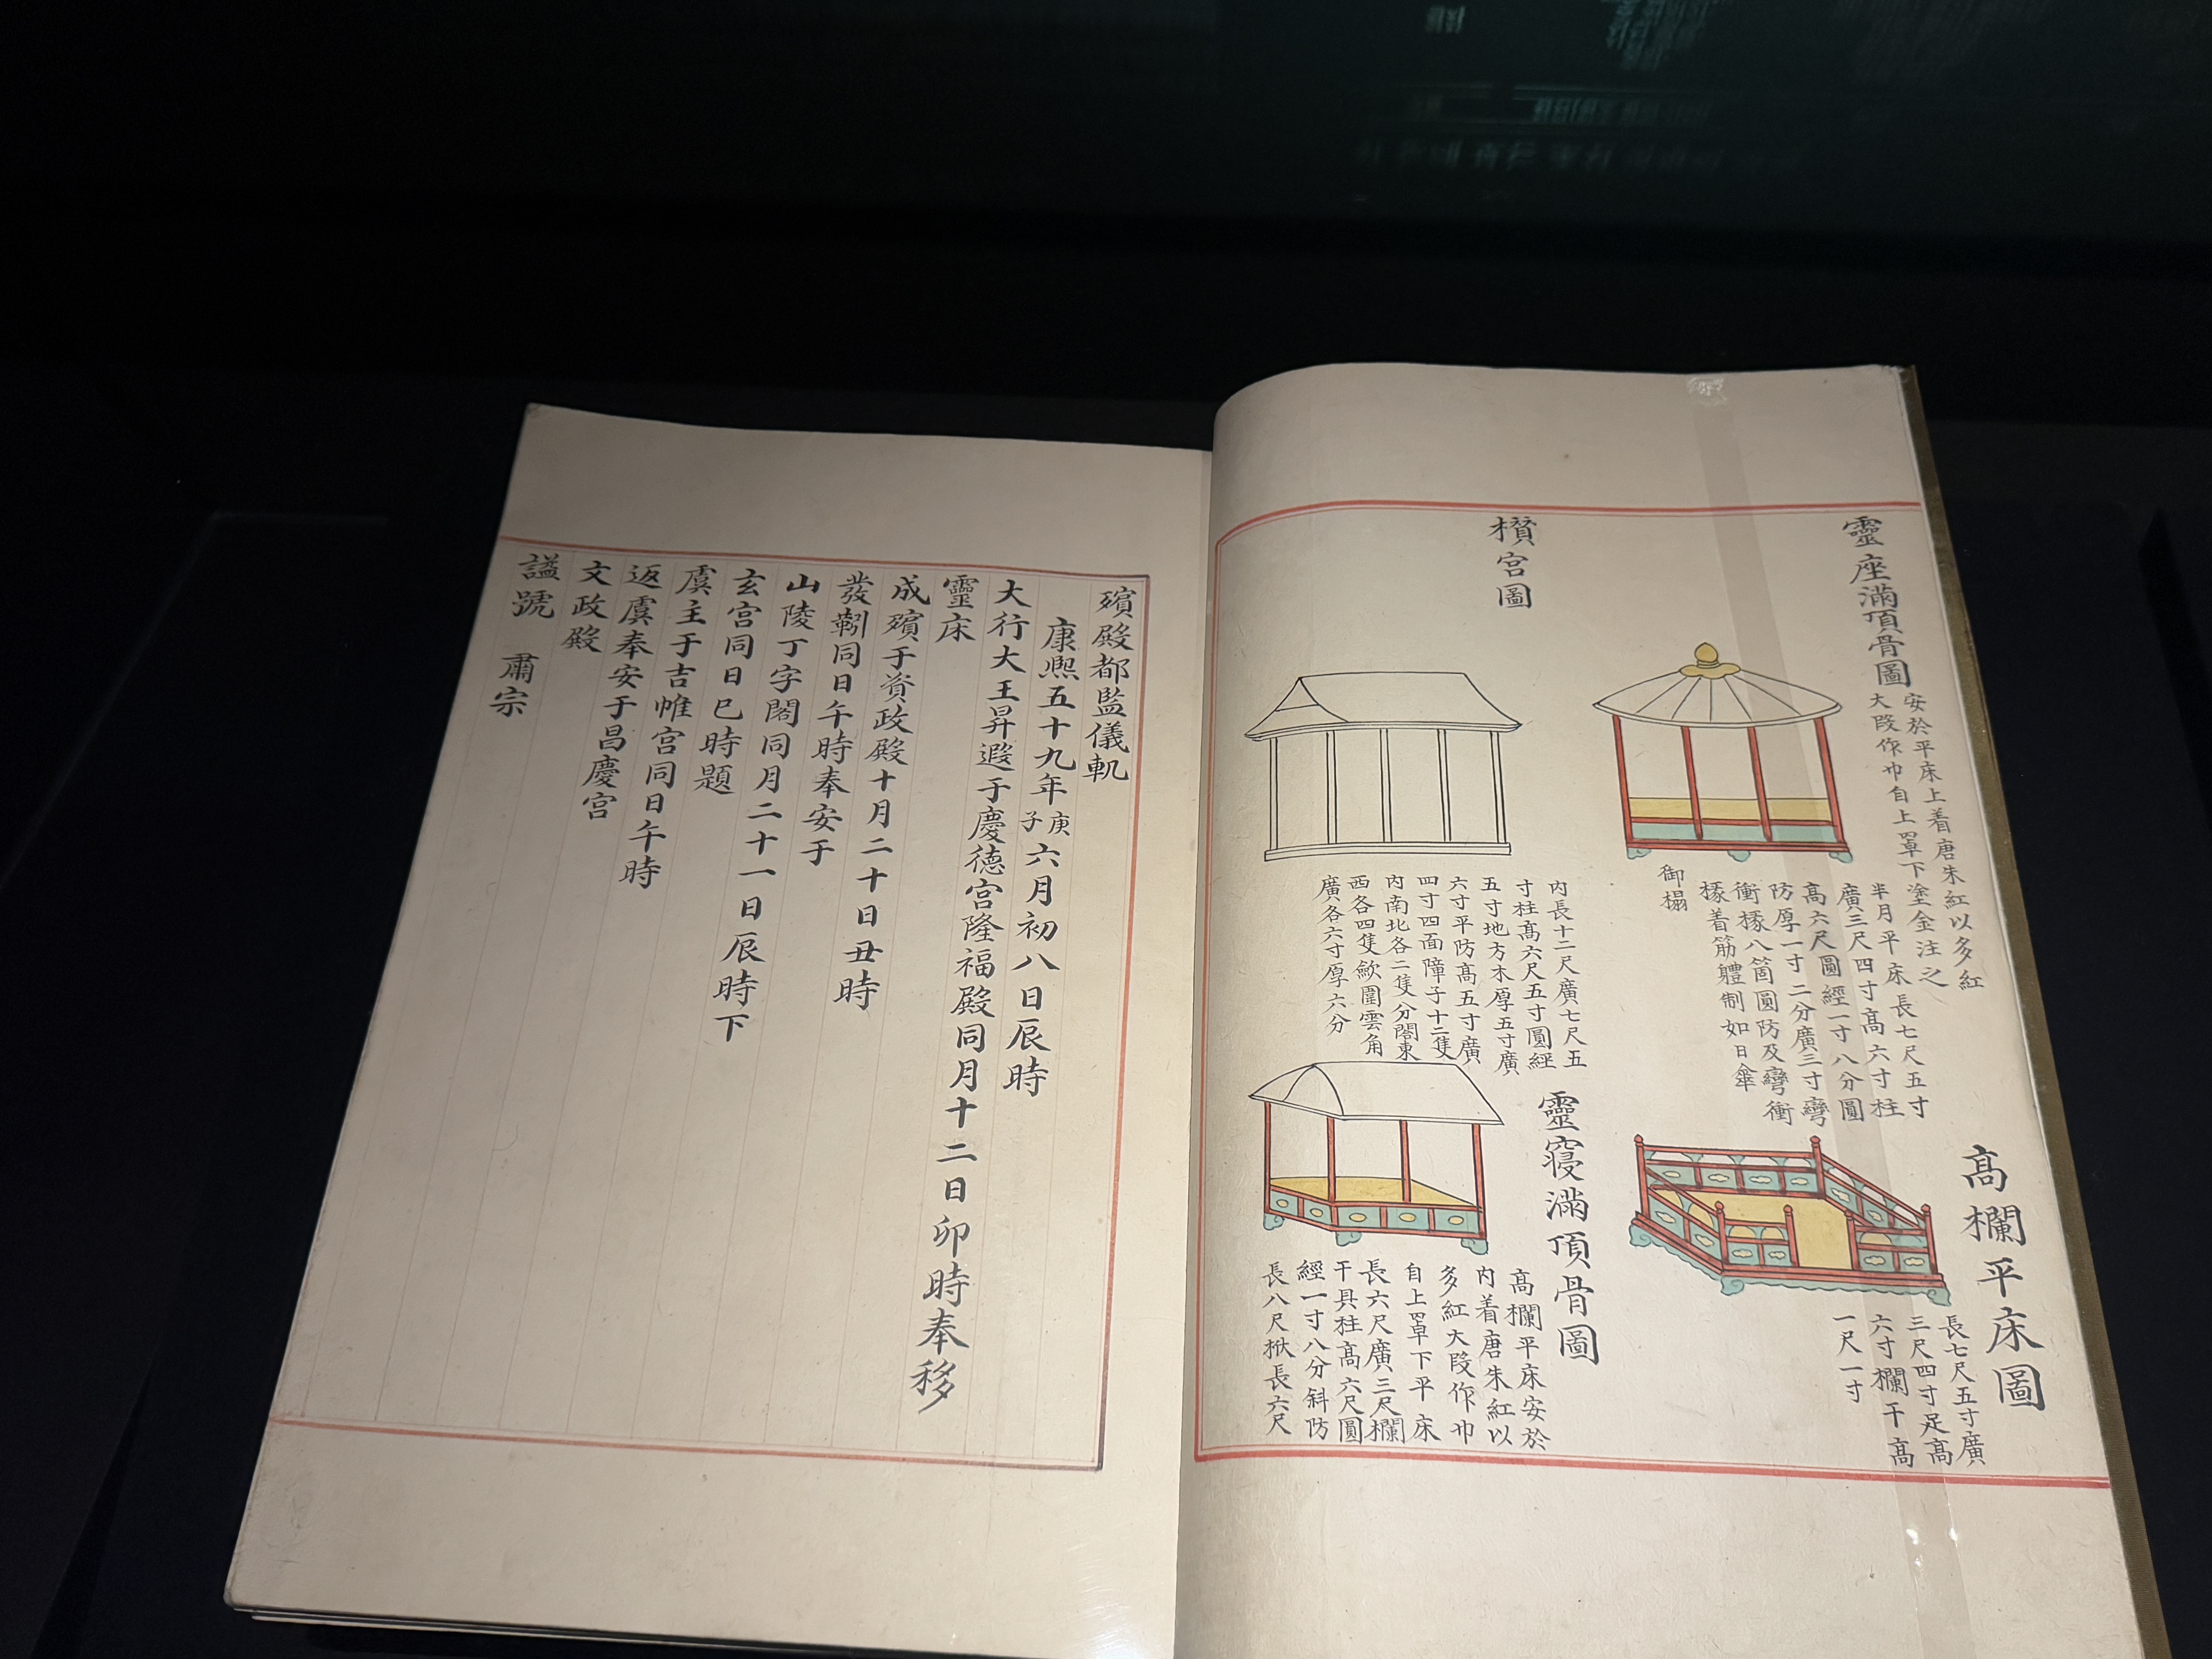 靈座滿頂骨圖
安於平床上着唐朱紅以多紅
大段作巾自上罩下塗金注之
半月平床長七尺五寸
廣三尺四寸高六寸柱
高六尺圓經一寸八分圓
防厚一寸二分廣三寸彎
衝椽八箇圓防及彎衝
椽着筋軆制如日傘
御榻
高欄平床圖
長七尺五寸廣
三尺四寸足高
六寸欄干高
一尺一寸
欑宮圖
內長十二尺廣七尺五
寸柱高六尺五寸圓經
五寸地方木厚五寸廣
六寸平防高五寸廣
四寸四面障子十二隻
內南北各二隻分閤東
西各四隻歛圍雲角
廣各六寸厚六分
靈寢滿頂骨圖
高欄平床安於
內着唐朱紅以
多紅大段作巾
自上罩下平床
長六尺廣三尺欄
干具柱高六尺圓
經一寸八分斜防
長八尺椺長六尺
殯殿都監儀軌
康熙五十九年庚子六月初八日辰時
大行大王昇遐于慶德宮隆福殿同月十二日卯時奉移
靈床
成殯于資政殿十月二十日丑時
發靷同日午時奉安于
山陵丁字閣同月二十一日辰時下
玄宮同日巳時題
虞主于吉帷宮同日午時
返虞奉安于昌慶宮
文政殿
諡號 肅宗